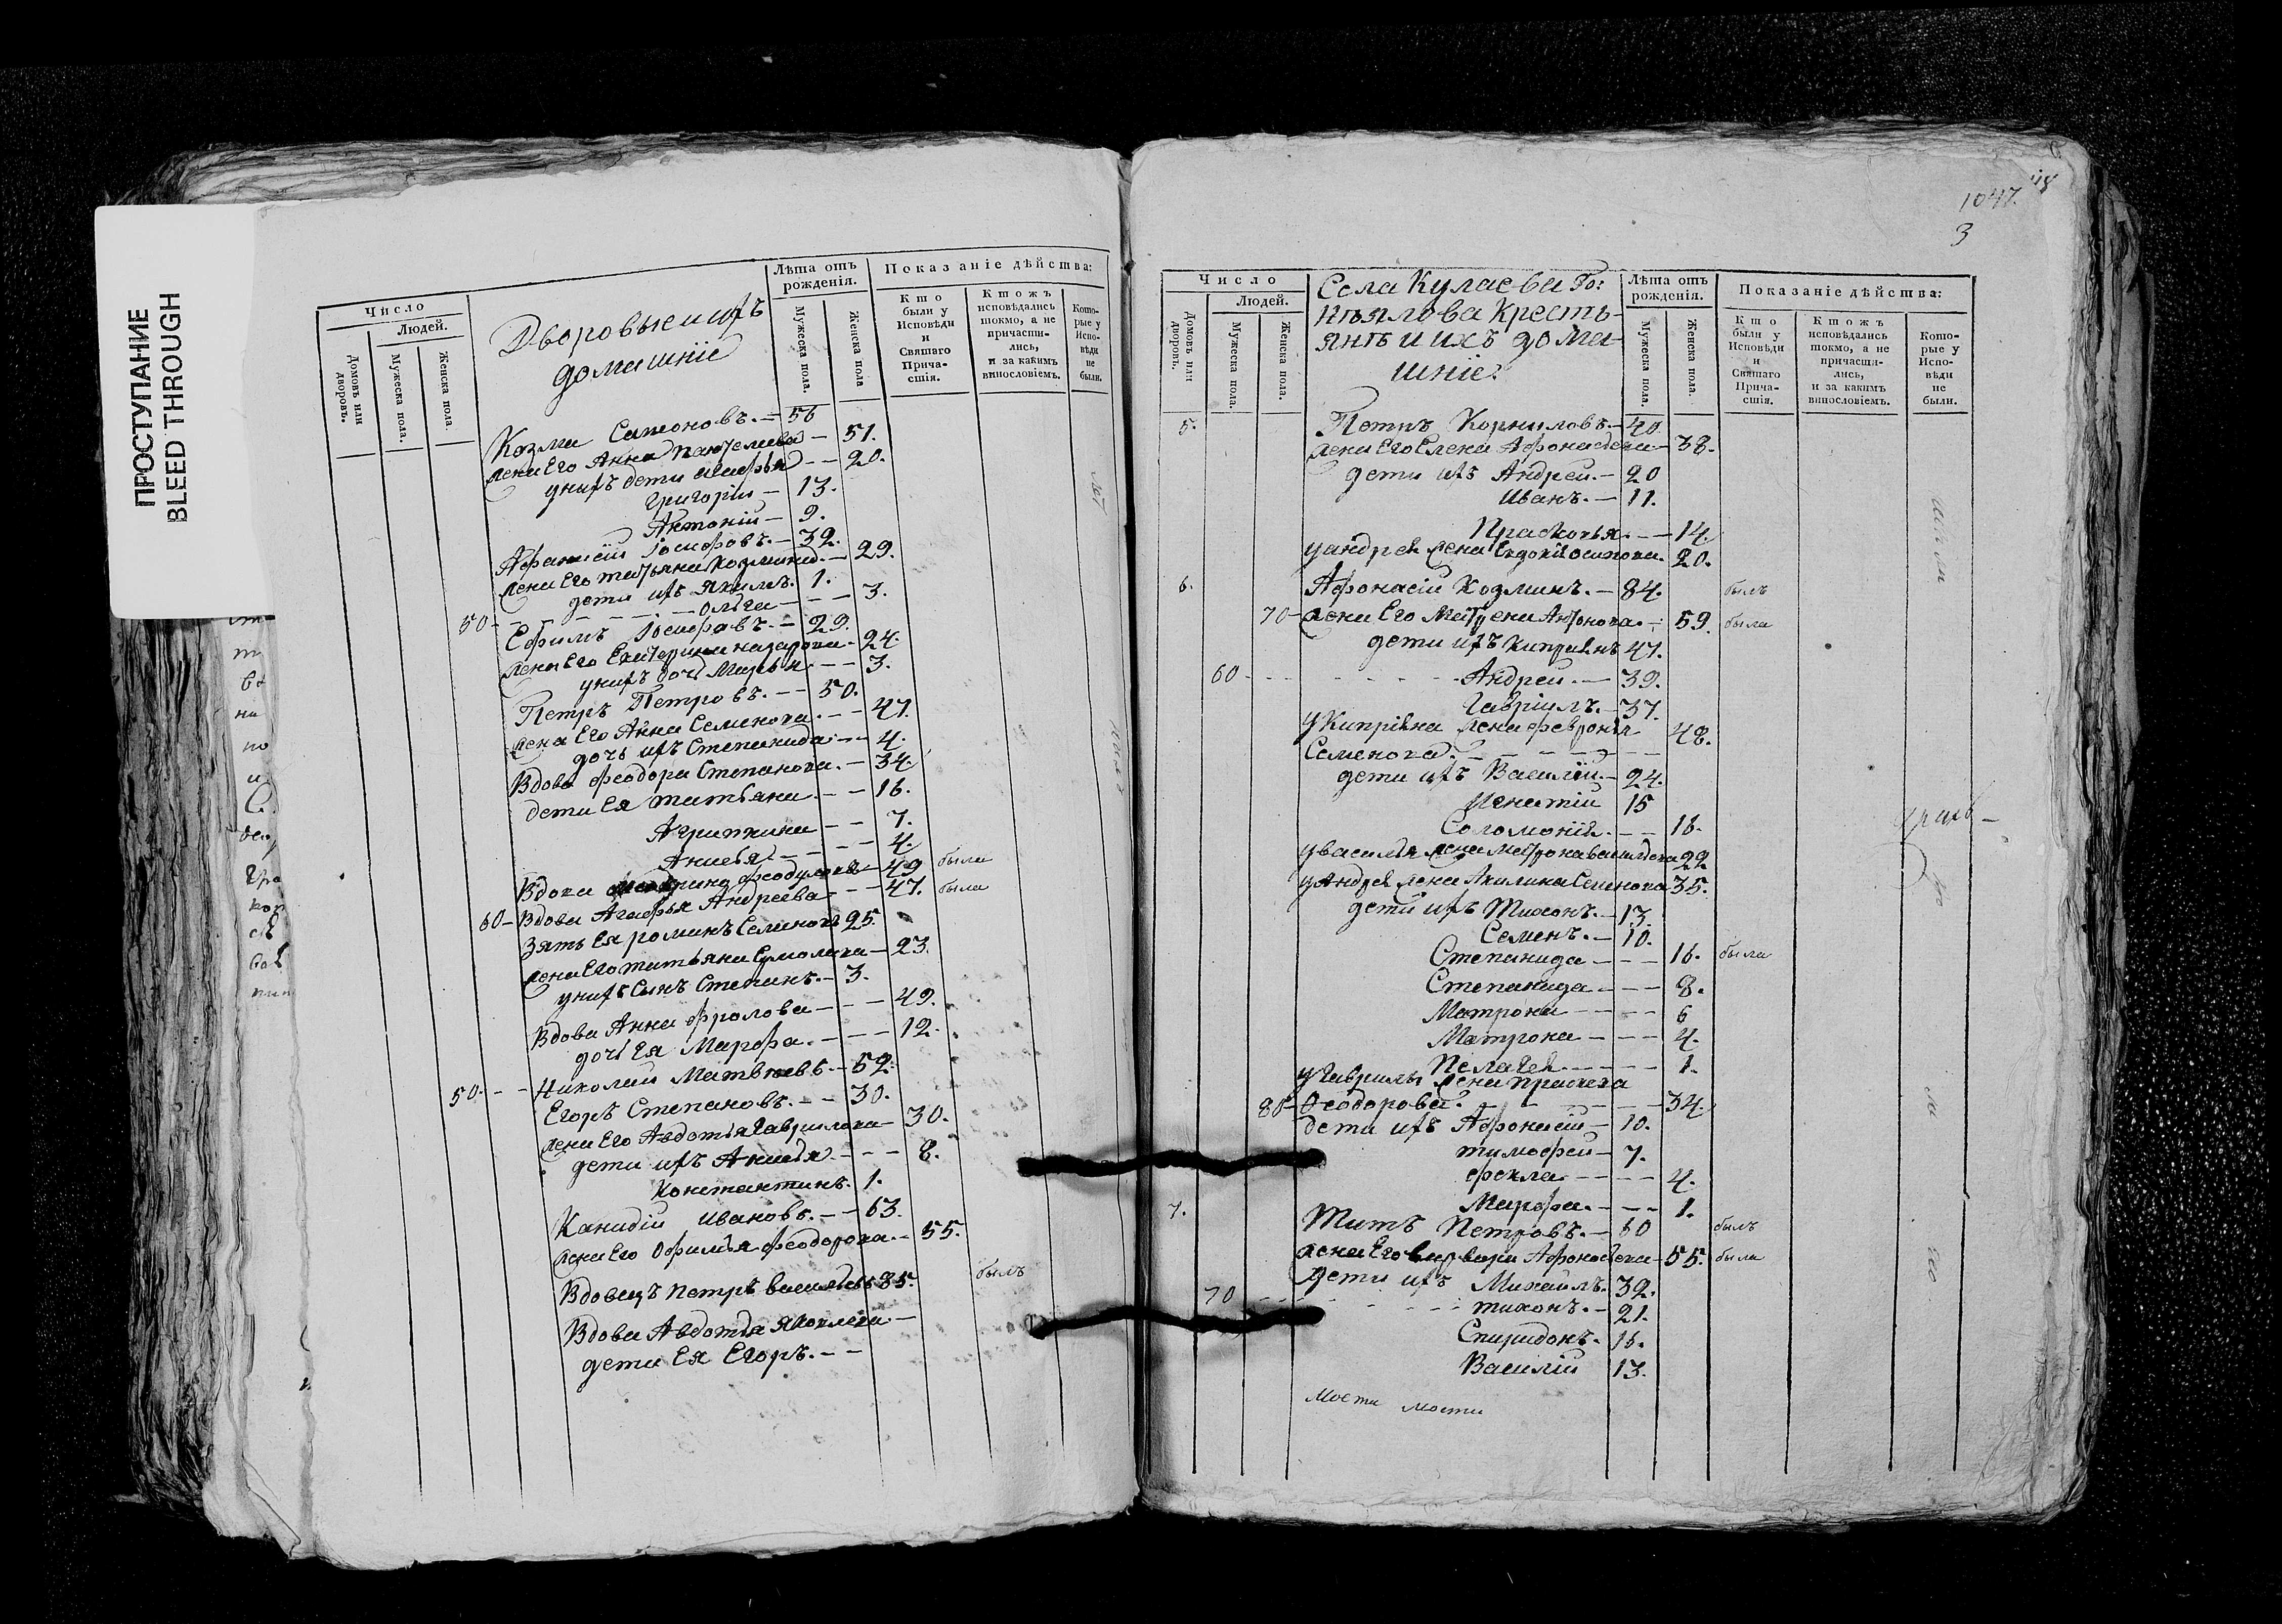 ПРОСТУПАНИЕ
BLEED THROUGH
Число
Людей.
Домовъ или дворовъ.
Мужеска пола.
Женска пола.
Дворовые ихъ
домашніе
Лѣта отъ рожденія.
Мужеска пола.
Женска пола
Показаніе дѣйства:
Кто были у Исповѣди и Святаго Причастія.
Ктожъ исповѣдались токмо, а не причастились, и за какимъ винословіемъ.
Которые у Исповѣди не были.
Козма Самоновъ. — 56
жена Его Анна Пантелиева — 51.
у нихъ дети Агафья — 20.
Григоріи — 13.
Антоніи — 9.
Афанасіи Іосифовъ. — 32.
жена Его татьяна Козмина — 29.
дети ихъ Якимъ. 1.
50 — Ольга — 3.
Ефимъ Іосифовъ. — 29.
жена Его Екатерина назарова — 24
у нихъ дочь Марья — 3.
Петръ Петровъ. — 50.
жена Его Анна Семенова. — 47.
дочь ихъ Степанида — 4.
Вдова феодора Степанова. — 34.
дети Ея татьяна. — 16.
Агрипина — 7.
Анисья — 4.
Вдова феодулова — 49 была
60 — Вдова Агафья Андреева — 47. была
Зять Ея романъ Семеновъ 25.
жена Его татьяна Ермолаева — 23.
у нихъ Сынъ Степанъ. — 3.
Вдова Анна фролова — 49.
дочь Ея Марфа. — 12.
50. — Николаи Матвѣевъ — 52.
Егоръ Степановъ. — 30.
жена Его Авдотья Гаврилова — 30.
дети ихъ Анисья — 8.
Константинъ. 1.
Канидіи Ивановъ. — 63.
жена Его Офимья феодорова. — 55.
Вдовецъ Петръ васильевъ 85. былъ
Вдова Авдотья Яковлева —
дети Ея Егоръ. —
1047.
118
3
Число
Людей.
Домовъ или дворовъ.
Мужеска пола.
Женска пола.
Села Кулаева По:
мѣялова Кресть-
янъ и ихъ дома-
шніе.
Лѣта отъ рожденія.
Мужеска пола.
Женска пола.
Показаніе дѣйства:
Кто были у Исповѣди и Святаго Причастія.
Ктожъ исповѣдались токмо, а не причастились, и за какимъ винословіемъ.
Которые у Исповѣди не были.
5. Петръ Корниловъ. — 40.
жена Его Елена Афонасьева — 38.
дети ихъ Андреи. — 20
Иванъ. — 11.
Прасковья. — 14.
у андрея жена Евдокія осипова. 20.
6. Афонасіи Козминъ. — 84. былъ
70 — жена Его Матрена Антонова. — 59. была
дети ихъ Кипріянъ 47.
60 — Андреи. — 39.
Гавріилъ. — 37.
у Кипріяна жена февронья
Семенова. — 48.
дети ихъ Василіи. — 24.
Игнатіи 15
Соломонія. — 16.
у василья жена Матрона васильева 22
у Андрея жена Акилина Семенова 35.
дети ихъ Тихонъ. — 13.
Семенъ. — 10.
Степанида — 16. была
Степанида — 8.
Матрона — 6
Матрона — 4.
Пелагея — 1.
у Гаврилы жена Прасковья
80 — Феодорова. — 34.
дети ихъ Афонасіи — 10.
тимофеи — 7.
фекла — 4.
Марфа. — 1.
7. Титъ Петровъ. — 60 былъ
жена Его варвара Афонасьева — 55. была
дети ихъ Михаилъ. 32.
70 — тихонъ. — 21.
Спиридонъ. 16.
Василіи 13.
мости мости